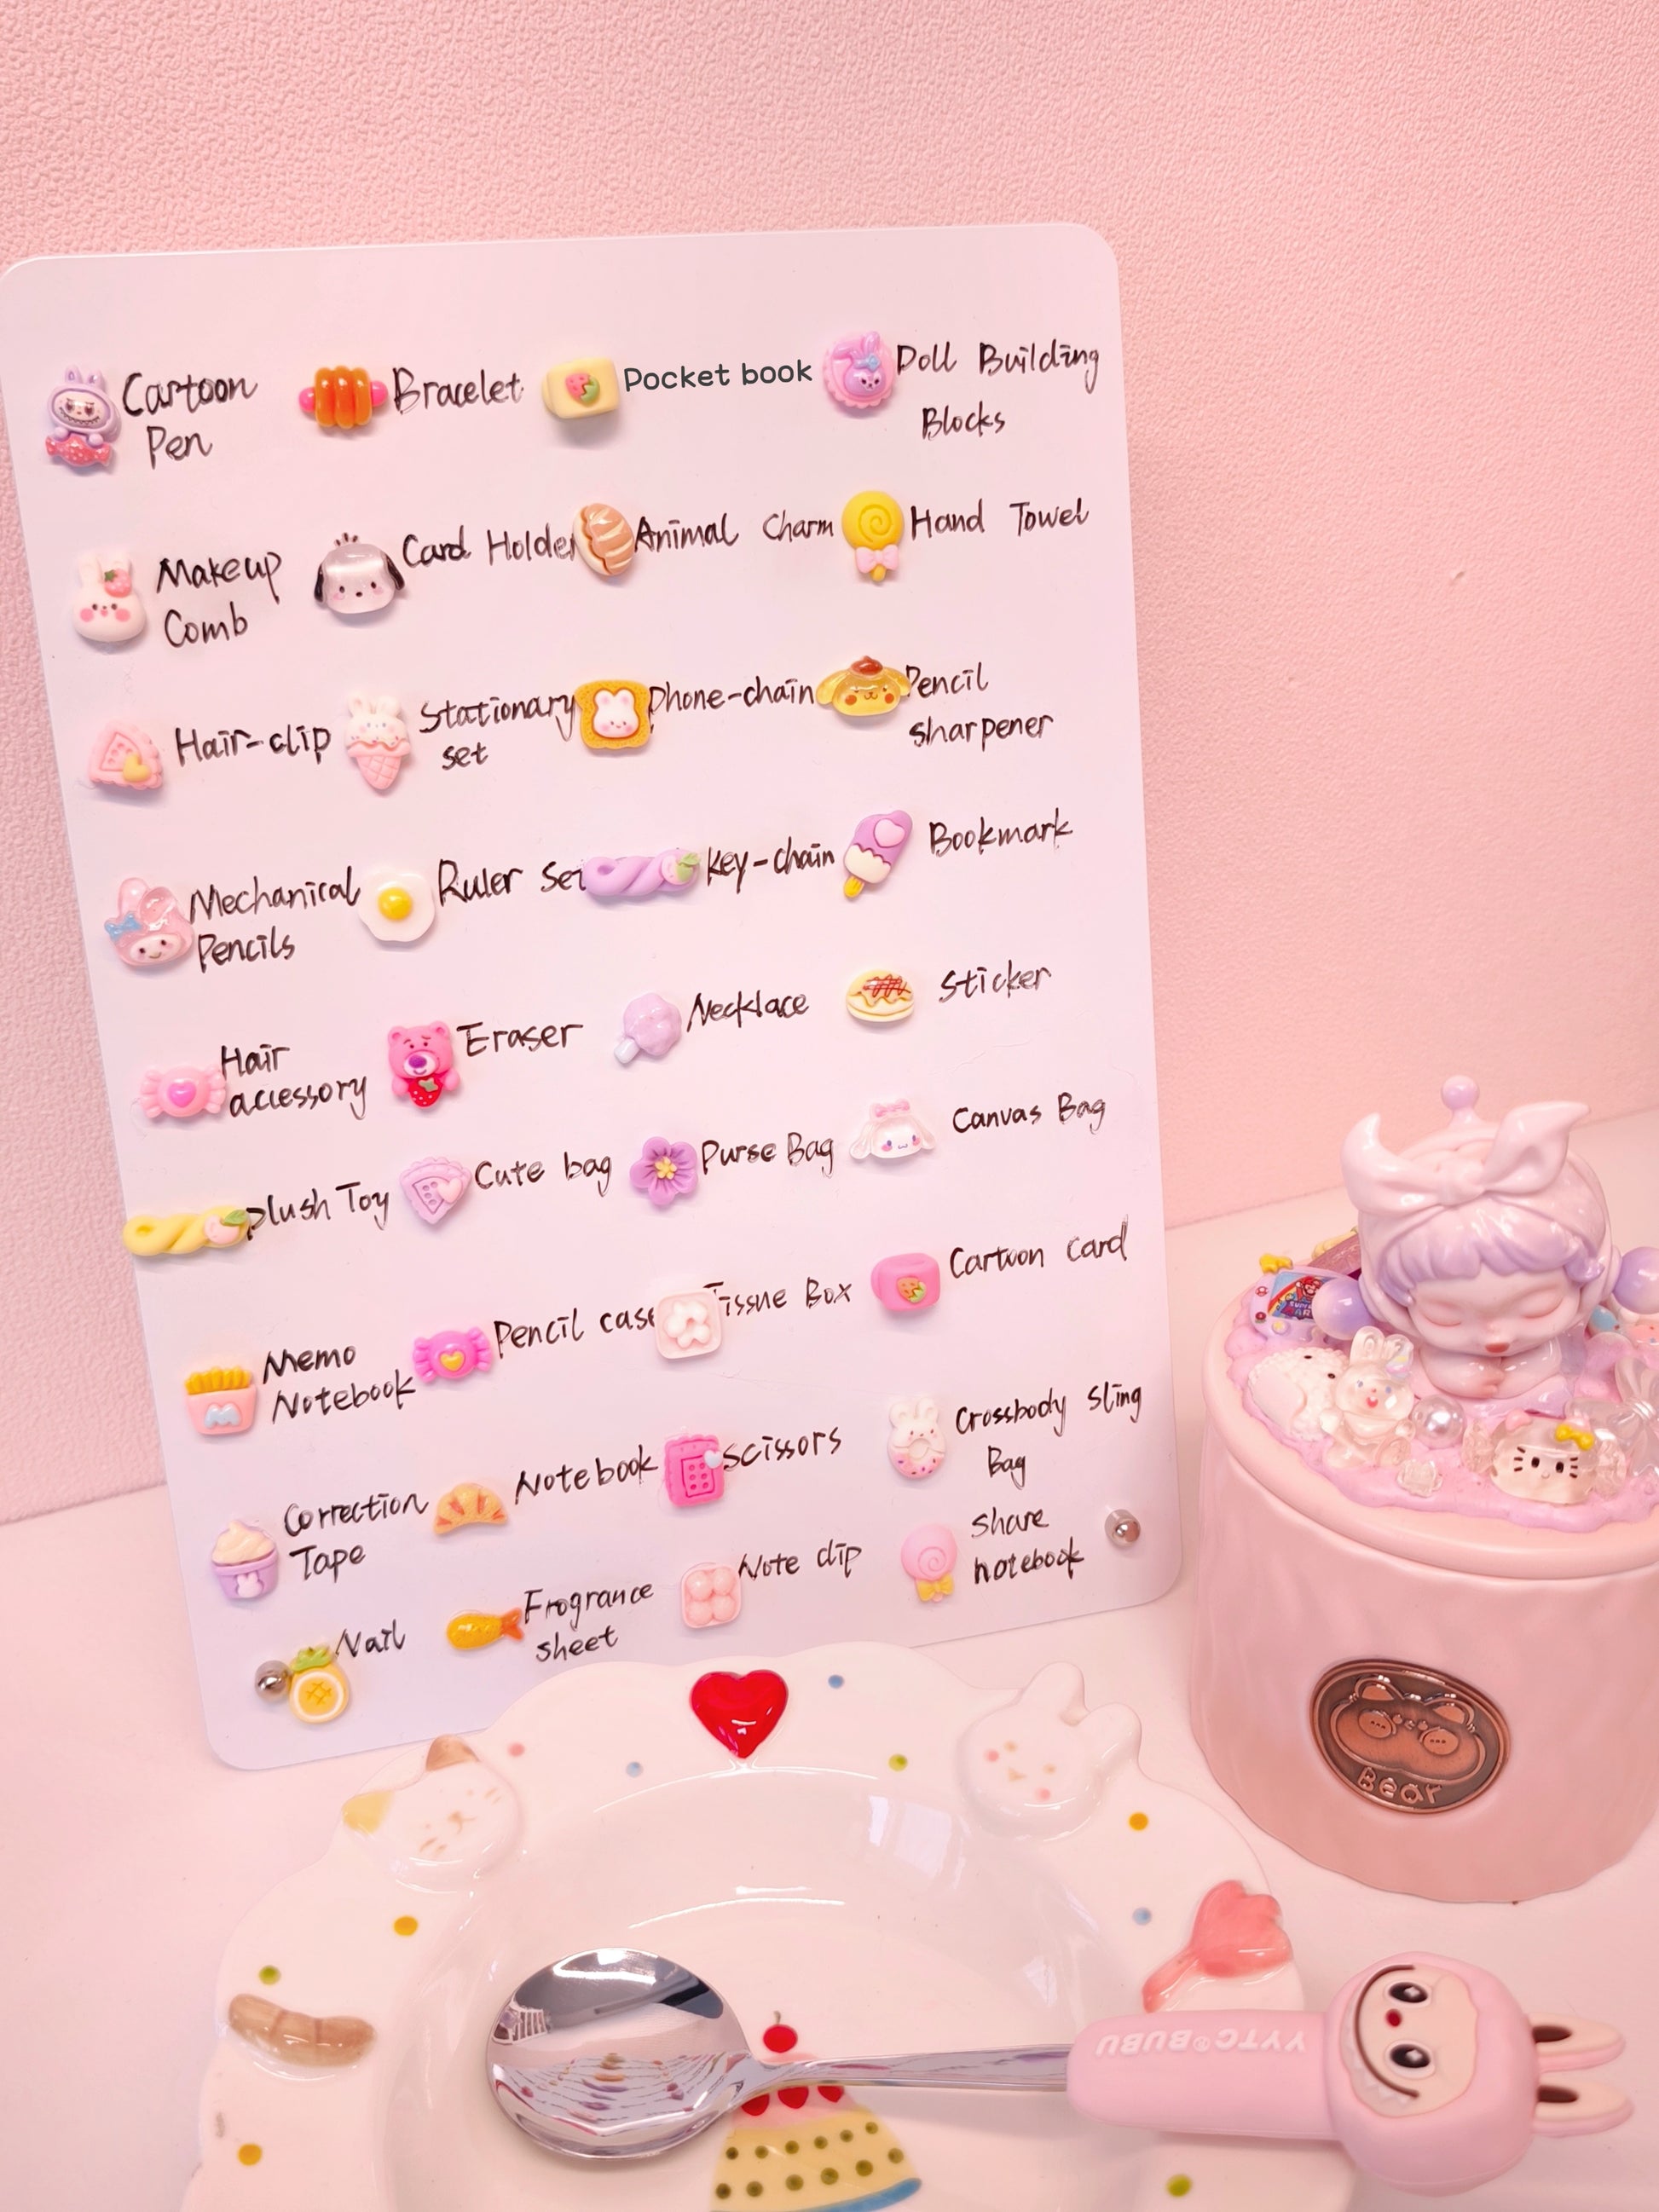 Cartoon
Pen
Bracelet
Pocket book
Doll Building
Blocks
Makeup
Comb
Card Holder
Animal Charm
Hand Towel
Hair-clip
Stationary
set
Phone-chain
Pencil
sharpener
Mechanical
Pencils
Ruler Set
key-chain
Bookmark
Hair
accessory
Eraser
Necklace
Sticker
plush Toy
Cute bag
Purse Bag
Canvas Bag
Memo
Notebook
Pencil case
Tissue Box
Cartoon Card
Correction
Tape
Notebook
Scissors
Crossbody Sling
Bag
Nail
Frogrance
sheet
Note clip
share
notebook
Bear
YYTC®BUBU